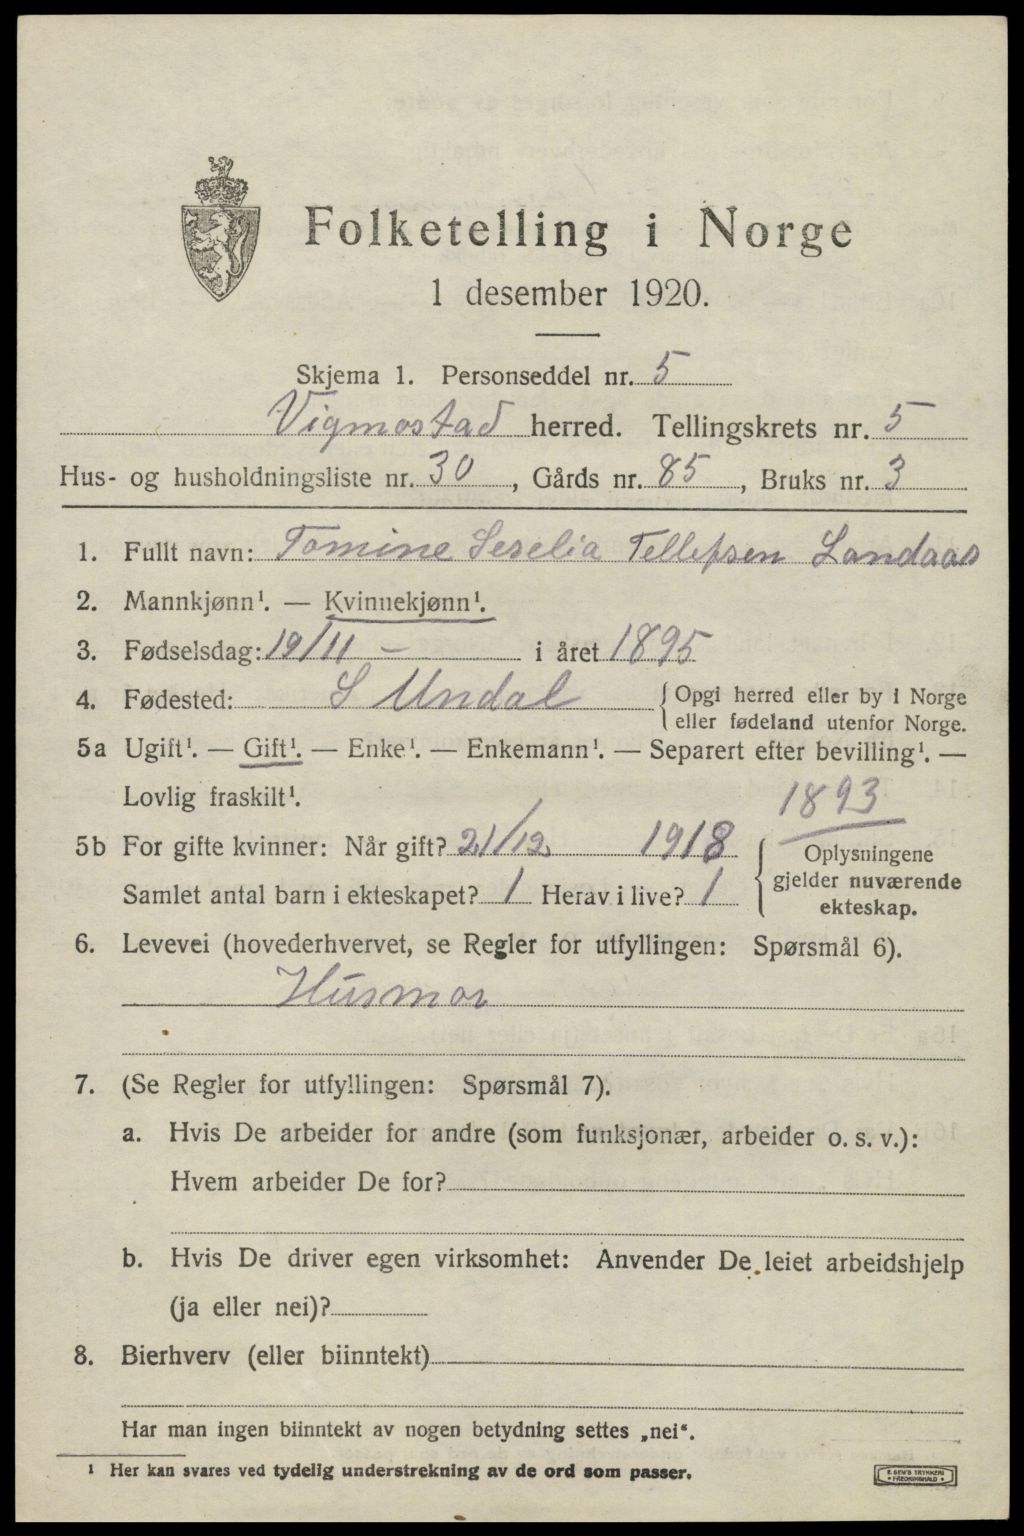 Folketelling i Norge
1 desember 1920.
Skjema 1. Personseddel nr. 5
Vigmostad herred. Tellingskrets nr. 5
Hus- og husholdningsliste nr. 30, Gårds nr. 85, Bruks nr. 3
1. Fullt navn: Tomine Seselia Tellefsen Landaas
2. Mannkjønn¹. — Kvinnekjønn¹.
3. Fødselsdag: 19/11 – i året 1895
4. Fødested: S Undal { Opgi herred eller by i Norge
eller fødeland utenfor Norge.
5a Ugift¹. — Gift¹. — Enke¹. — Enkemann¹. — Separert efter bevilling¹. —
Lovlig fraskilt¹. 1893
5b For gifte kvinner: Når gift? 21/12 1918 { Oplysningene
gjelder nuværende
Samlet antal barn i ekteskapet? 1 Herav i live? 1
ekteskap.
6. Levevei (hovederhvervet, se Regler for utfyllingen: Spørsmål 6).
Husmor
7. (Se Regler for utfyllingen: Spørsmål 7).
a. Hvis De arbeider for andre (som funksjonær, arbeider o. s. v.):
Hvem arbeider De for?
b. Hvis De driver egen virksomhet: Anvender De leiet arbeidshjelp
(ja eller nei)?
8. Bierhverv (eller biinntekt)
Har man ingen biinntekt av nogen betydning settes „nei".
¹ Her kan svares ved tydelig understrekning av de ord som passer.